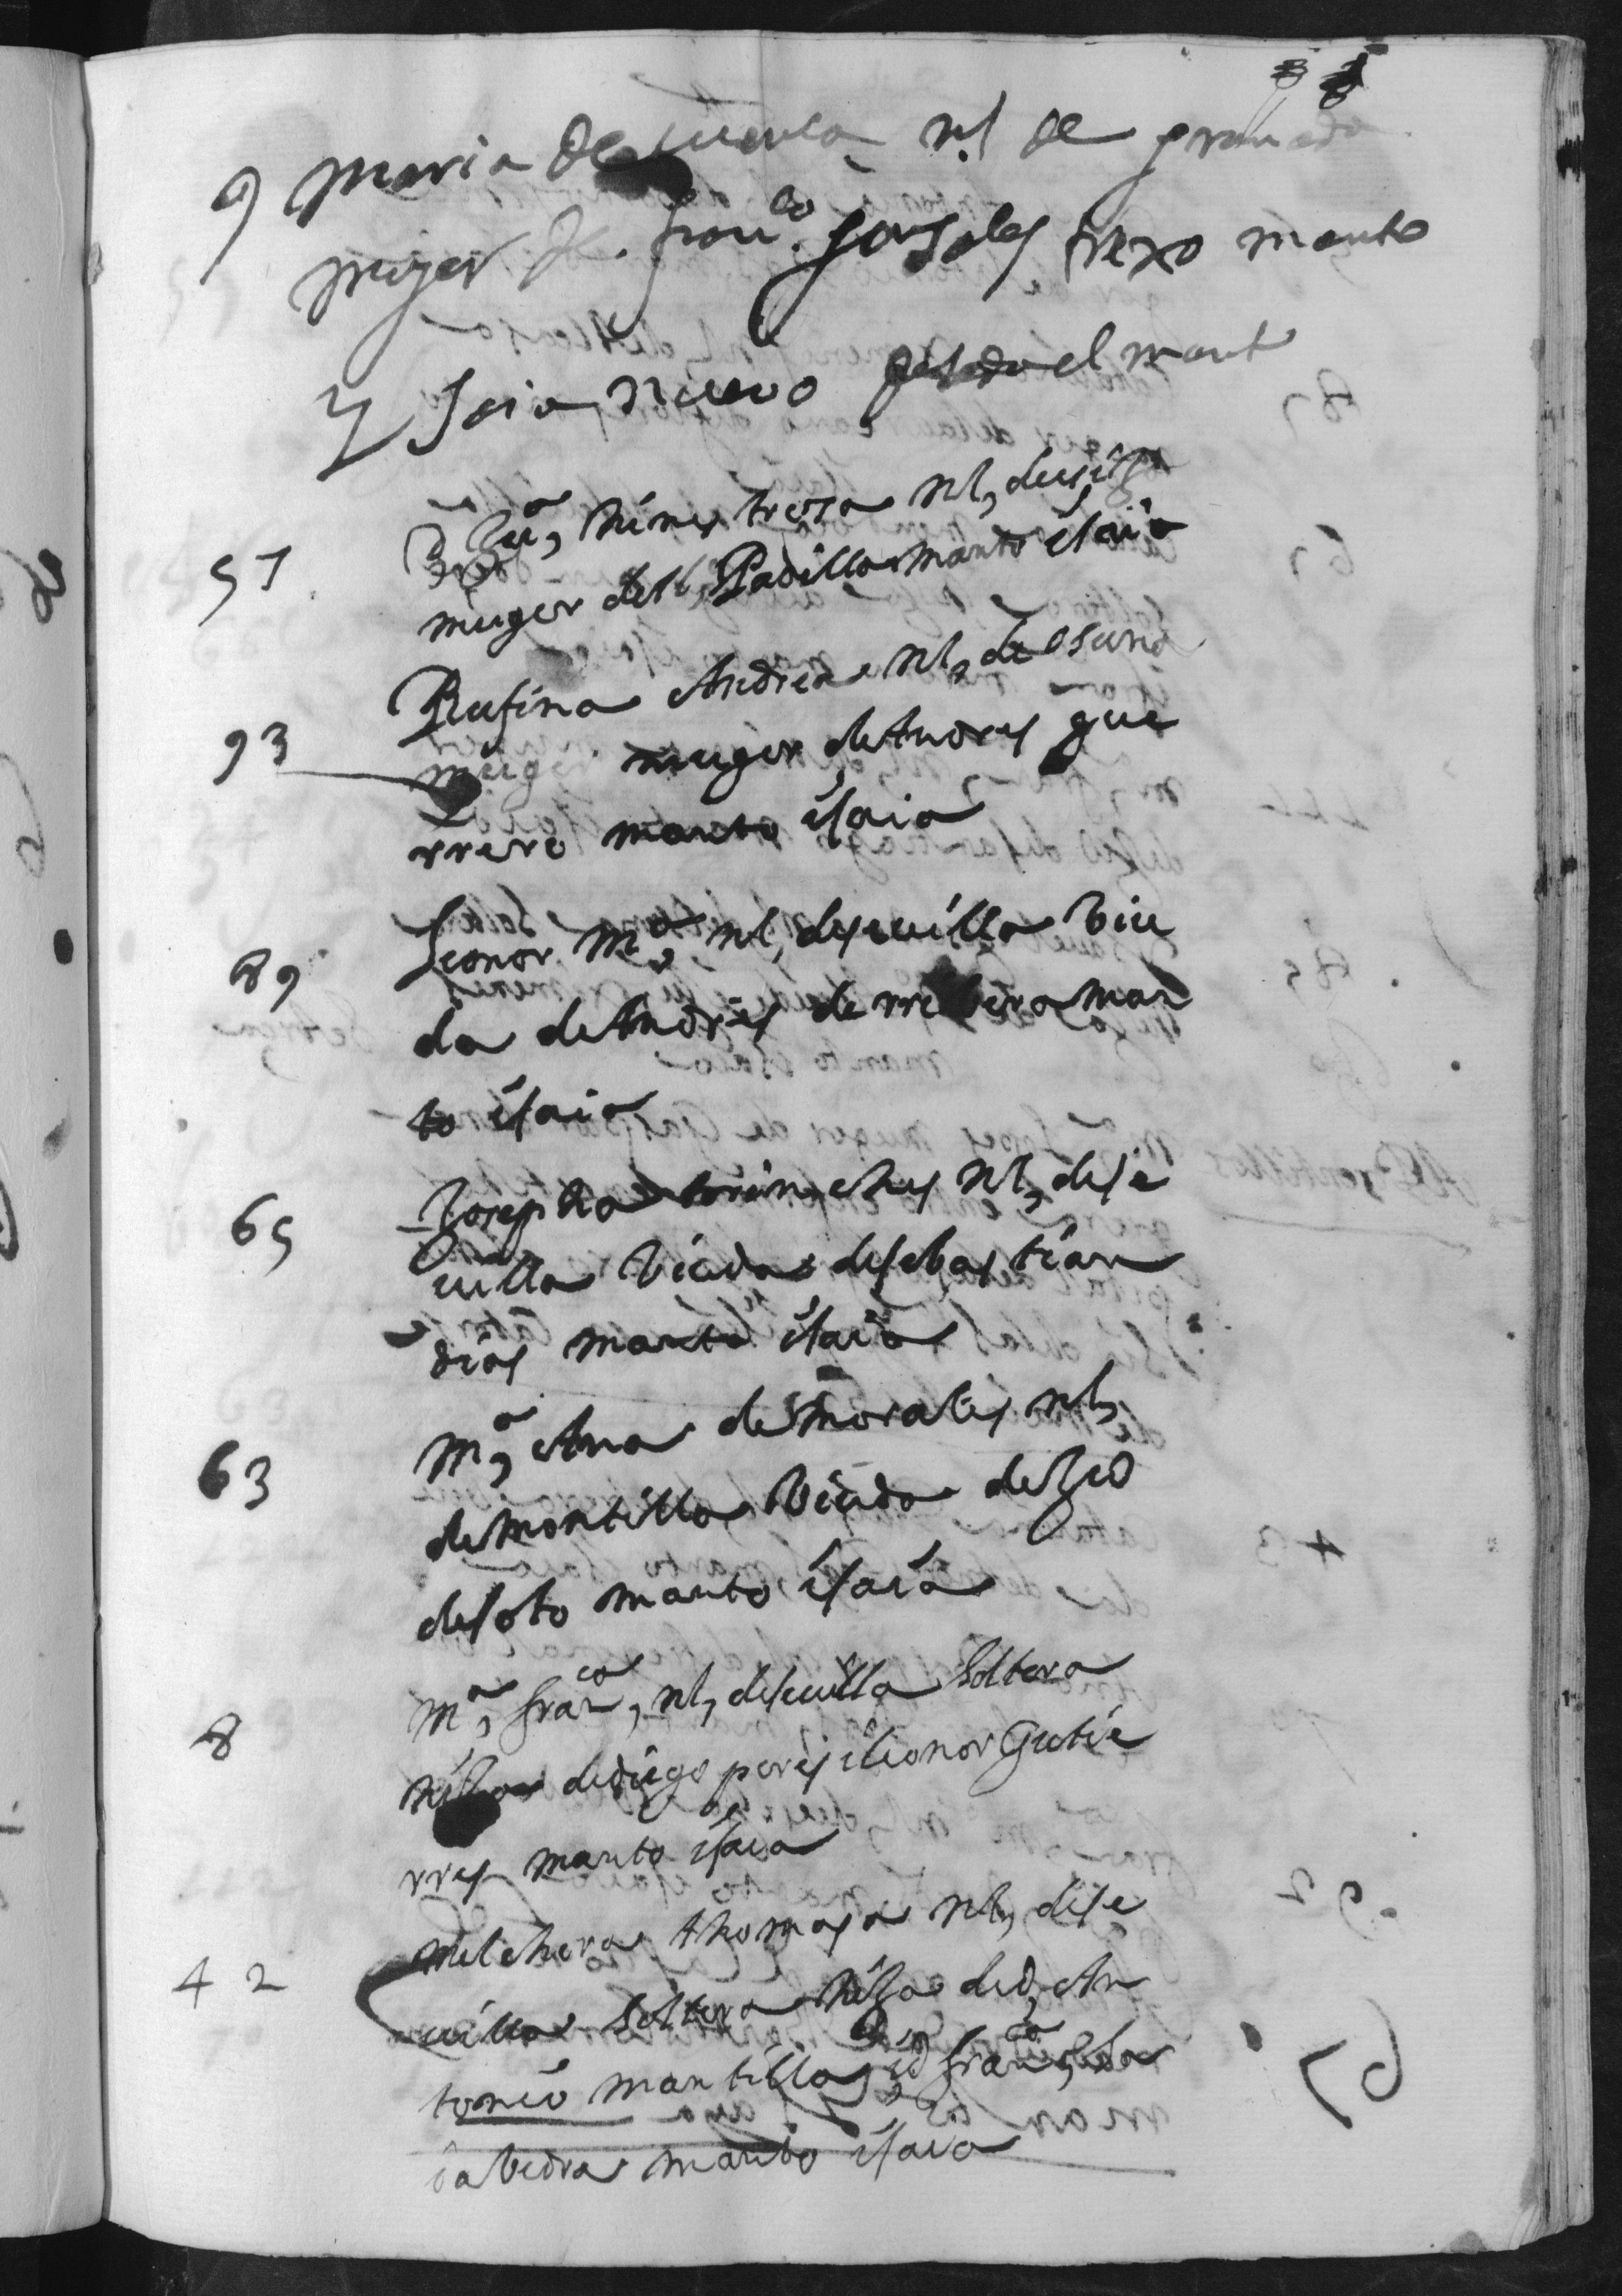 9 maria de cuenca nl de granada
muger de franco gonsales trexo manto
y saia nuevo el mant
51 D Juā, hinestrosa nl, de seuilla
muger del Padilla manto isaia
Rufina Andrea nl, de osuna
93 muger muger de Andres gue
rrero manto isaia
89 Leonor ma, nl, deseuilla biu
da de Andres de rribera man
to isaia
65 Josepha nl, dese
uilla biuda desebastian
dias manto isaia
63 ma, Ana de morales nl,
demontilla biuda de
desoto manto isaia
8 ma, franca, nl, deseuilla soltera
hija dediego peres ileonor Gutie
rres manto isaia
42 melchora thomasa nl, dese
uilla soltera hija ded, An
tonio mantilla id franca, sa
iabedra manto isaia